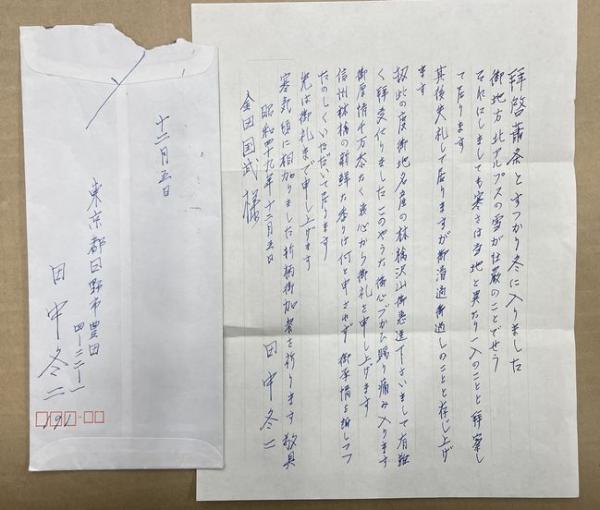 拝啓 蕭条とすつかり冬に入りました
御地方 北アルプスの雪が壮厳のことでせう
それにしましても寒さは当地と異なり一入のことと拝察し
て居ります
其後失礼して居りますが御清適御過しのことと存じ上げ
ます
扨此の度御地名産の林檎沢山御恵送下さいまして有難
く拝受仕りました このやうな御心づかひ賜り痛み入ります
御厚情千万忝なく衷心から御礼を申し上げます
信州林檎の新鮮な香りは何と申されず 御厚情を拝しつつ
たのしくいただいて居ります
先は御礼まで申し上げます
寒気頓に相加りました折柄御加養を祈ります 敬具
昭和四十九年十二月五日
田中冬二
金田国武様
十二月五日
東京都日野市豊田
四ー二二ー一
田中冬二
191